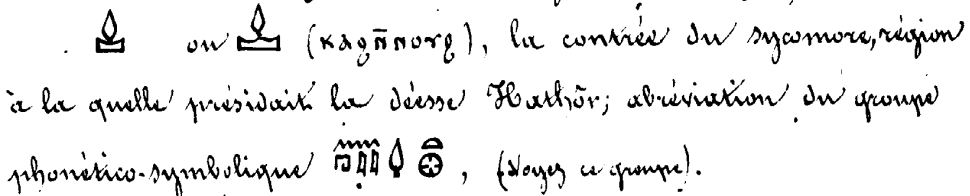 ou (ⲕⲁϩⲛ̄ⲛⲟⲩϩ), la contrée du sycomore, région
à la quelle présidait la déesse Hathôr; abréviation du groupe
phonético-symbolique , (Voyez ce groupe).